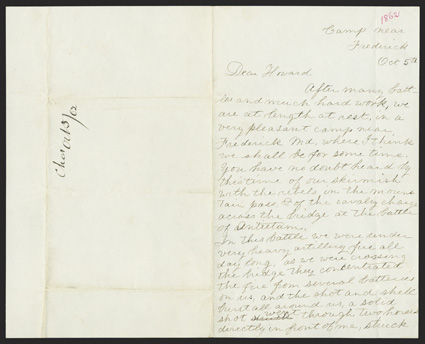 1862
Camp near
Frederick
Oct 5th
Dear Howard
After many batt
les and much hard work, we
are at length at rest, in a
very pleasant camp near
Frederick Md. where I think
we shall be for some time.
You have no doubt heard by
this time of our skirmish
with the rebels, on the moun
tain pass, & of the cavalry charge
across the bridge at the battle
of Antietam.
In this battle we were under
very heavy artillery fire all
day long, as we were crossing
the bridge they concentrated
the fire from several batteries
on us, and the shot and shell
burst all around us, a solid
shot went through two horses
directly in front of me, struck
Oct 5/62